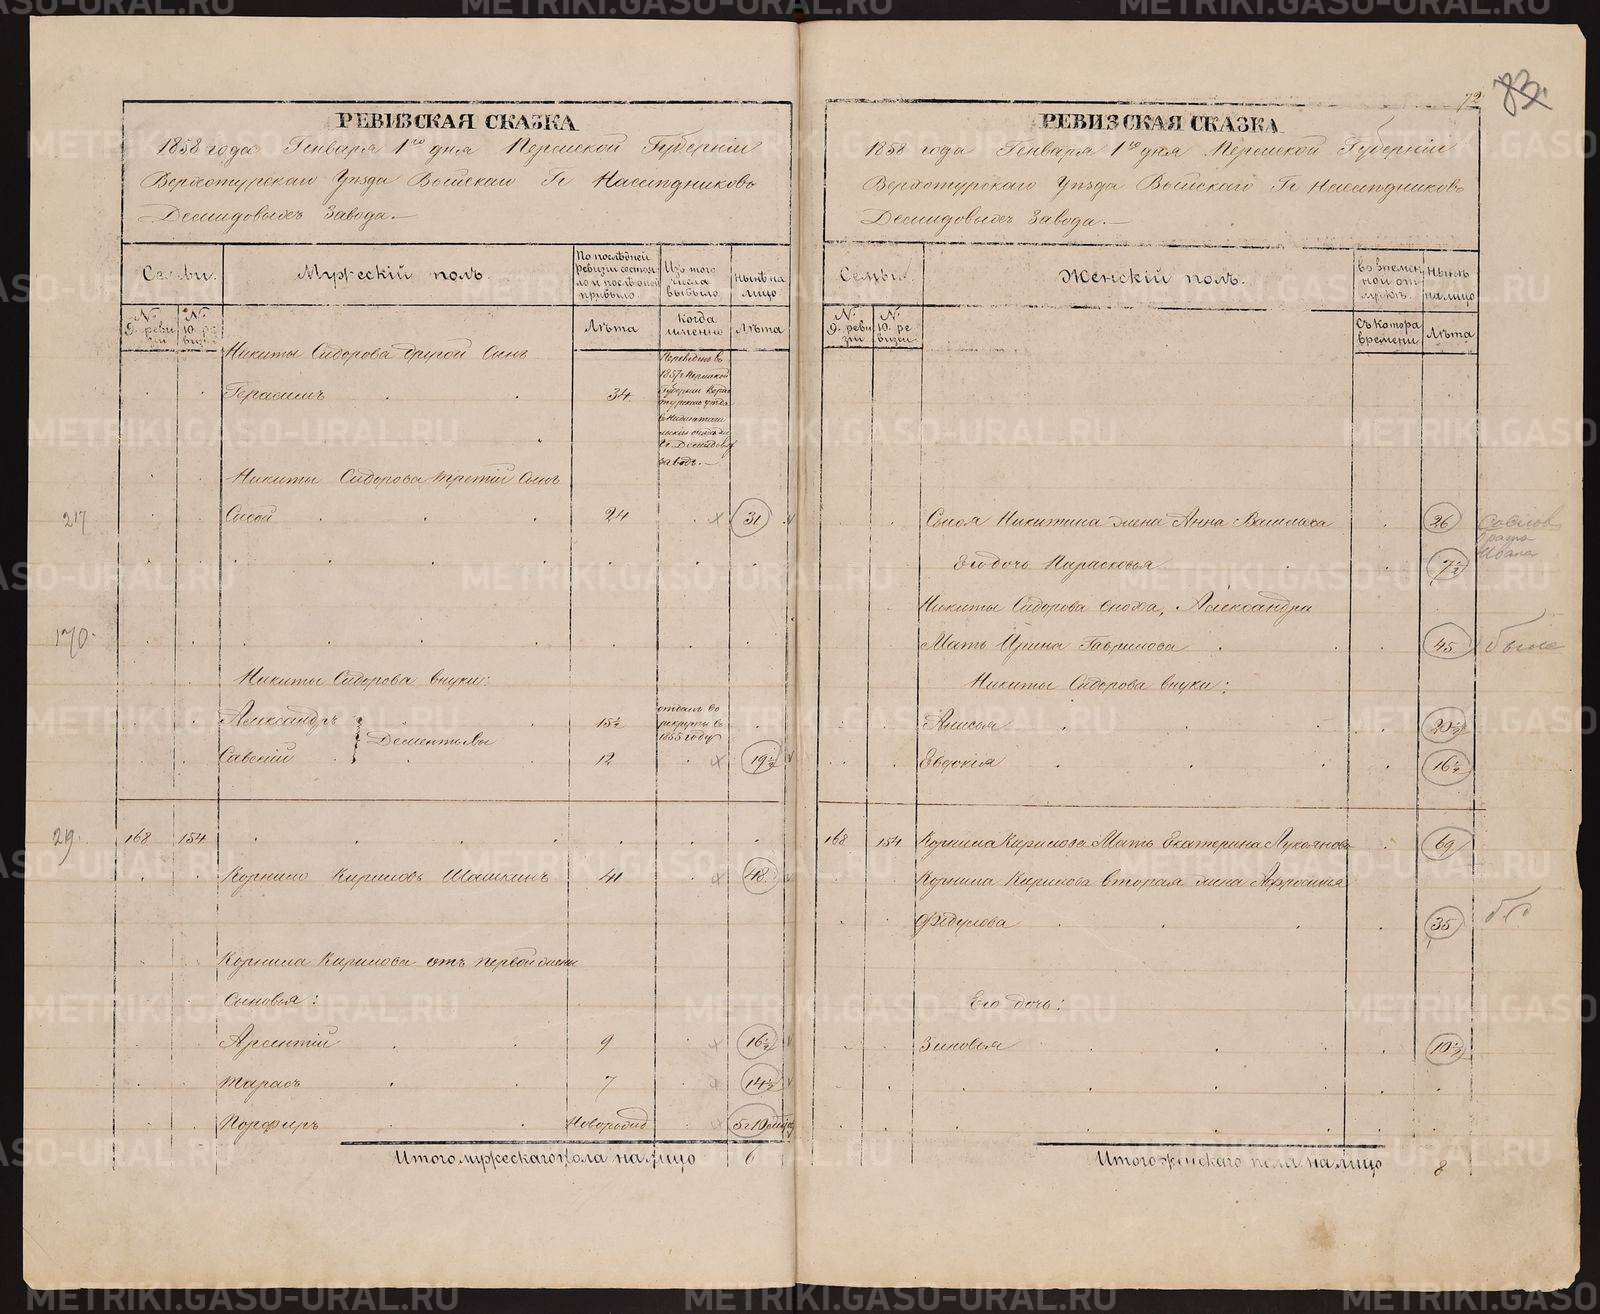 72
83.
РЕВИЗСКАЯ СКАЗКА
1858 года Генваря 1го дня Пермской Губернiи
Верхотурскаго Уѣзда Выйскаго Гг Наслѣдниковъ
Демидовыхъ Завода.—
Семьи.
Мужескiй полъ.
По послѣдней ревизiи состояло и послѣ оной прибыло
Изъ того числа выбыло
Нынѣ на лицо
№ 9. ревизiи
№ 10. ревизiи
Лѣта
Когда именно
Лѣта
Никиты Сидорова другой Сынъ
Герасимъ 34
Переведенъ въ
1857 г Пермской
Губернiи Верхо
турскаго уѣзда
Гг Демидовыхъ
заводъ.—
Никиты Сидорова третiй Сынъ
217
Сысой 24 31
170.
Никиты Сидорова внуки:
Александръ 15½ отданъ въ рекруты въ 1855 году
Дементьевы
Савскiй 12 19½
29.
168 154
Корнило Кириловъ Шашкинъ 41 48
Корнила Кирилова отъ первой жены
Сыновья:
Арсентiй 9 16½
Тарасъ 7 14½
Порфиръ Новорожд 5 г 10 мѣс
Итого мужескаго пола на лицо 6
РЕВИЗСКАЯ СКАЗКА
1858 года Генваря 1го дня Пермской Губернiи
Верхотурскаго Уѣзда Выйскаго Гг Наслѣдниковъ
Демидовыхъ Завода.—
Семьи.
Женскiй полъ.
Во временной отлучкѣ.
Нынѣ на лицо
№ 9. ревизiи
№ 10. ревизiи
Съ котора времени
Лѣта
Сысоя Никитина жена Анна Васильева 26
Его дочь Парасковья 7½
Никиты Сидорова сноха, Александра
Мать Ирина Гаврилова 45
Никиты Сидорова внуки:
Анисья 20½
Евдокiя 16½
168 154 Корнила Кирилова Мать Екатерина Лукоянова 69
Корнила Кирилова вторая жена Афросинья
Федулова 35
Его дочь:
Зиновья 10½
Итого женскаго пола на лицо 8
METRIKI.GASO-URAL.RU